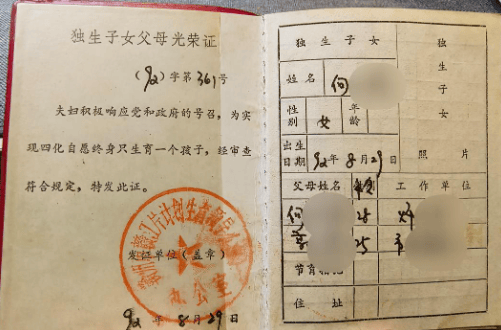 独生子女父母光荣证
(92)字第361号
夫妇积极响应党和政府的号召,为实
现四化自愿终身只生育一个孩子,经审查
符合规定,特发此证。
发证单位(盖章)
办公室
92年8月29日
独生子女
姓名 何
性别 女 年龄
出生日期 92年8月29日
独生子女
照片
父母姓名 工作单位
何 28
25 市
节育
住址